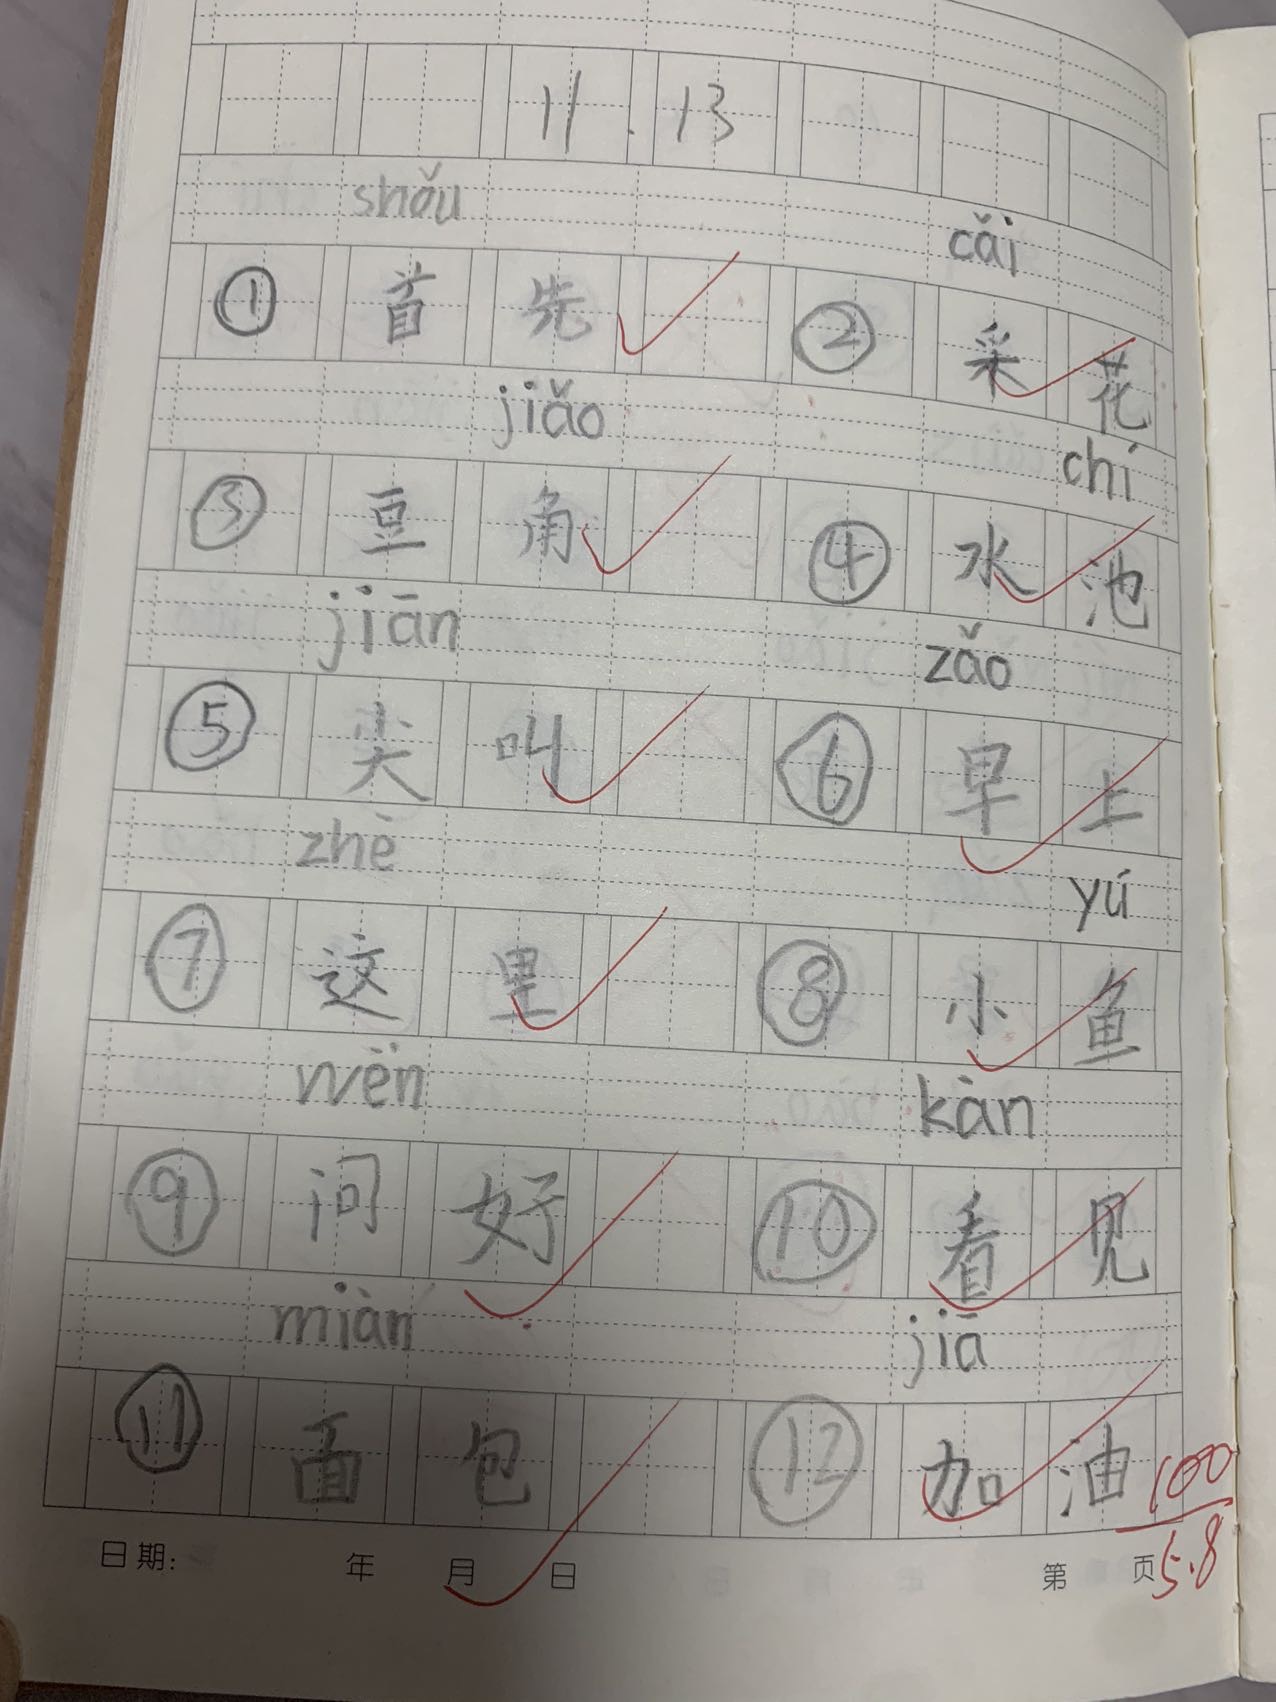 11.13
shǒu cǎi
① 首先 ② 采花
jiǎo chí
③ 豆角 ④ 水池
jiān zǎo
⑤ 尖叫 ⑥ 早上
zhè yú
⑦ 这里 ⑧ 小鱼
wèn kàn
⑨ 问好 ⑩ 看见
miàn jiā
⑪ 面包 ⑫ 加油
100
日期: 年 月 日 第 页
5.8